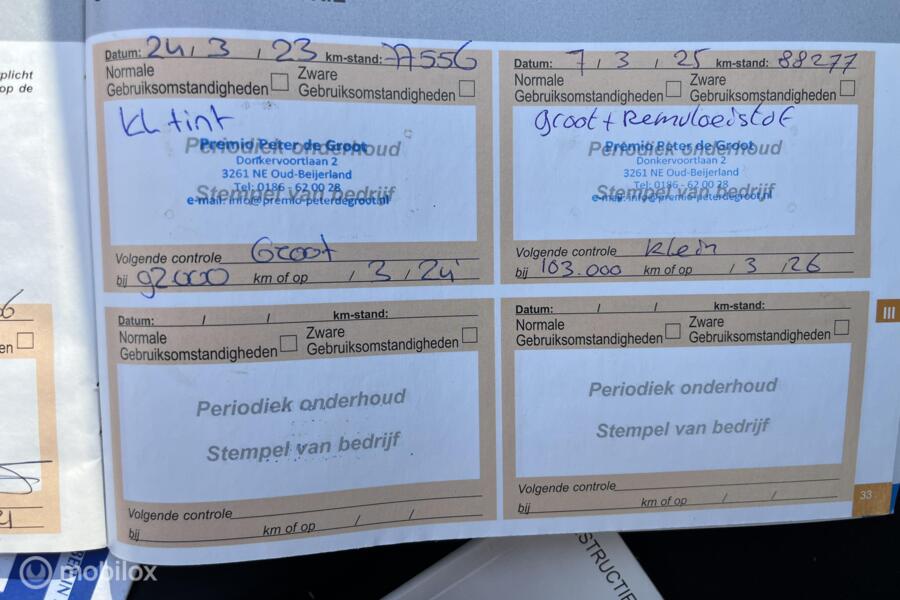 plicht
op de
Datum: 24 / 3 / 23 km-stand: 77556
Normale Gebruiksomstandigheden
Zware Gebruiksomstandigheden
Periodiek onderhoud
Premio Peter de Groot
Donkervoortlaan 2
3261 NE Oud-Beijerland
Tel: 0186 - 62 00 28
Stempel van bedrijf
e-mail: info@premio-peterdegroot.nl
Volgende controle Groot
bij 92000 km of op / 3 / 24
Datum: 7 / 3 / 25 km-stand: 88277
Normale Gebruiksomstandigheden
Zware Gebruiksomstandigheden
Groot + Remvloeistof
Periodiek onderhoud
Premio Peter de Groot
Donkervoortlaan 2
3261 NE Oud-Beijerland
Tel: 0186 - 62 00 28
Stempel van bedrijf
e-mail: info@premio-peterdegroot.nl
Volgende controle Klein
bij 103.000 km of op / 3 / 26
Datum: / / km-stand:
Normale Gebruiksomstandigheden
Zware Gebruiksomstandigheden
Periodiek onderhoud
Stempel van bedrijf
Volgende controle
bij km of op / /
Datum: / / km-stand:
Normale Gebruiksomstandigheden
Zware Gebruiksomstandigheden
Periodiek onderhoud
Stempel van bedrijf
Volgende controle
bij km of op / /
III
33
en
mobilox